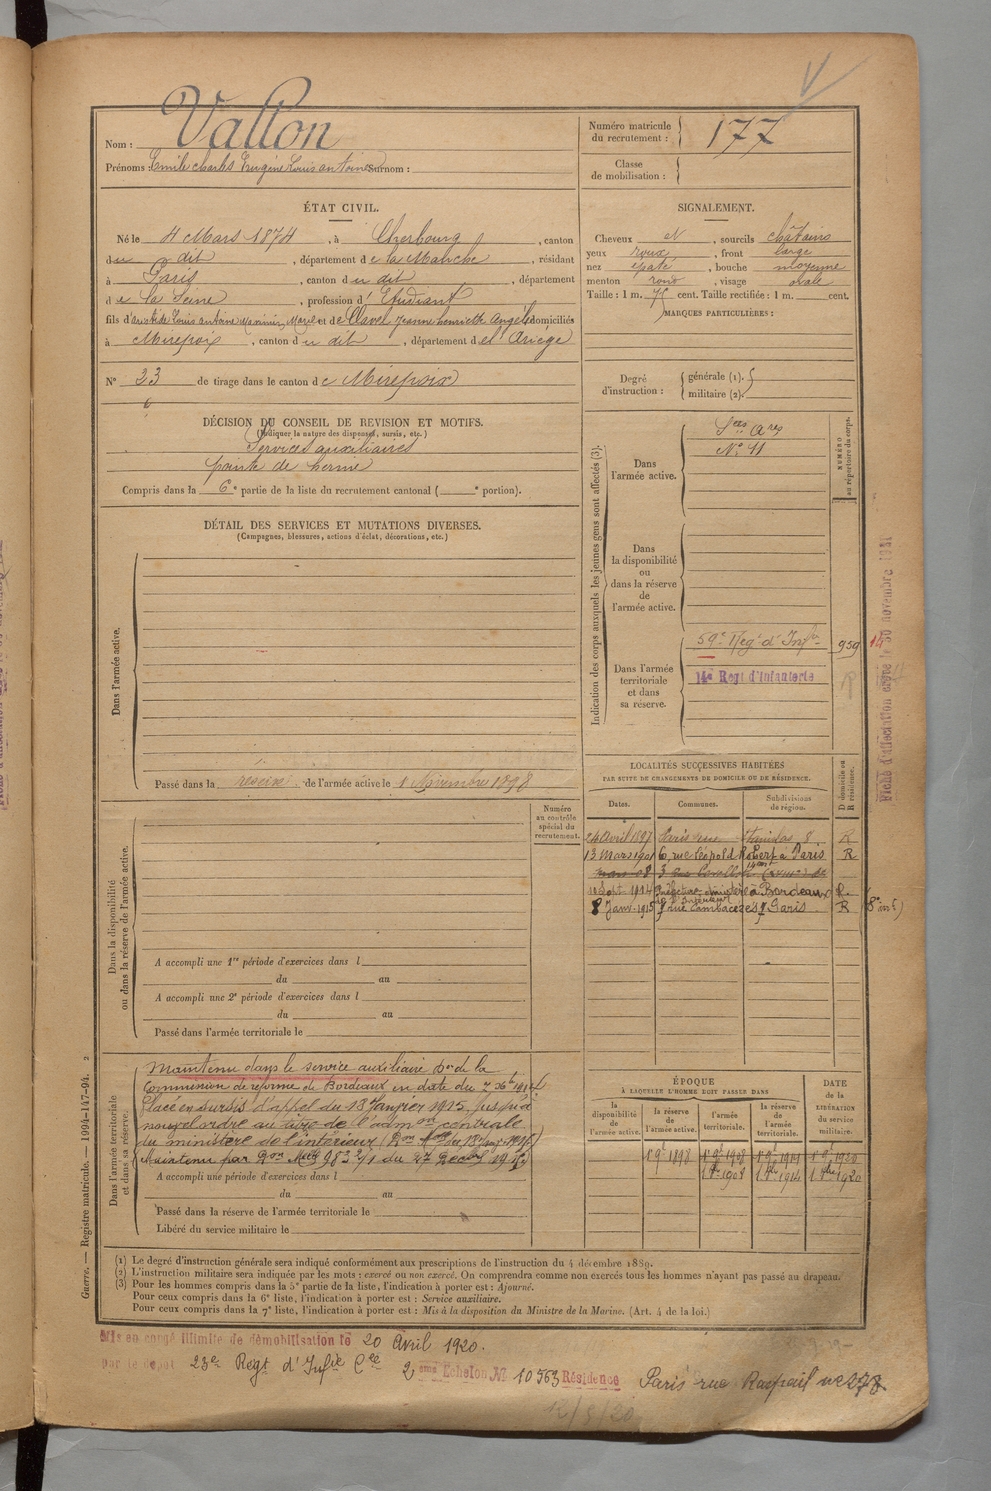 Nom : Vallon
Prénoms : Emile Charles Eugène Louis antoine Surnom :
Numéro matricule du recrutement : 177
Classe de mobilisation :
ÉTAT CIVIL.
Né le 4 Mars 1874, à Cherbourg, canton
du dit, département de la Manche, résidant
à Paris, canton du dit, département
de la Seine, profession d'Etudiant
fils d'aristide Louis antoine Maximin Marie et de Clavel Jeanne henriette Angèle domiciliés
à Mirepoix, canton du dit, département de l'Ariège
N° 23 de tirage dans le canton de Mirepoix
SIGNALEMENT.
Cheveux et, sourcils châtains
yeux roux, front large
nez épaté, bouche moyenne
menton rond, visage ovale
Taille : 1 m. 75 cent. Taille rectifiée : 1 m. cent.
MARQUES PARTICULIÈRES :
Degré d'instruction : générale (1).
militaire (2).
DÉCISION DU CONSEIL DE REVISION ET MOTIFS.
(Indiquer la nature des dispenses, sursis, etc.)
Services auxiliaires
pointe de hernie
Compris dans la 6e partie de la liste du recrutement cantonal ( e portion).
DÉTAIL DES SERVICES ET MUTATIONS DIVERSES.
(Campagnes, blessures, actions d'éclat, décorations, etc.)
Dans l'armée active.
Passé dans la réserve de l'armée active le 1 Novembre 1898
Indication des corps auxquels les jeunes gens sont affectés (3).
NUMÉRO au répertoire du corps.
Dans l'armée active.
Sces Ares
N° 11
Dans la disponibilité ou dans la réserve de l'armée active.
Dans l'armée territoriale et dans sa réserve.
59e Regt d'Infie 959
14e Regt d'Infanterie
Fiche d'affectation établie le 30 novembre 1931
LOCALITÉS SUCCESSIVES HABITÉES
PAR SUITE DE CHANGEMENTS DE DOMICILE OU DE RÉSIDENCE.
Dates. Communes. Subdivisions de région. D domicile ou R résidence.
24 Avril 1897 Paris rue Stanislas 8 R
13 Mars 1901 6, rue Léopold Robert à Paris R
10 Sept 1914 Préfecture ministère de l'Intérieur à Bordeaux R
8 Janv. 1915 7 rue Cambacérès Paris R
Numéro au contrôle spécial du recrutement.
Dans la disponibilité ou dans la réserve de l'armée active.
A accompli une 1re période d'exercices dans l
du au
A accompli une 2e période d'exercices dans l
du au
Passé dans l'armée territoriale le
Dans l'armée territoriale et dans sa réserve.
Maintenu dans le service auxiliaire Don de la
Commission de réforme de Bordeaux en date du 7 Xbre 1914
Placé en sursis d'appel du 13 Janvier 1915 jusqu'à
nouvel ordre au titre de l'admon centrale
du ministère de l'intérieur (Don Mlle du 13 Janv. 1915)
Maintenu par Don Mlle 983 2/1 du 27 Décbre 1915
A accompli une période d'exercices dans l
du au
Passé dans la réserve de l'armée territoriale le
Libéré du service militaire le
ÉPOQUE
À LAQUELLE L'HOMME DOIT PASSER DANS
la disponibilité de l'armée active. la réserve de l'armée active. l'armée territoriale. la réserve de l'armée territoriale. DATE de la LIBÉRATION du service militaire.
1 9bre 1898 1 9bre 1908 1 9bre 1914 1 9bre 1920
1 8bre 1908 1 8bre 1914 1 8bre 1920
Guerre. — Registre matricule. — 1994-147-94. 2
(1) Le degré d'instruction générale sera indiqué conformément aux prescriptions de l'instruction du 4 décembre 1889.
(2) L'instruction militaire sera indiquée par les mots : exercé ou non exercé. On comprendra comme non exercés tous les hommes n'ayant pas passé au drapeau.
(3) Pour les hommes compris dans la 5e partie de la liste, l'indication à porter est : Ajourné.
Pour ceux compris dans la 6e liste, l'indication à porter est : Service auxiliaire.
Pour ceux compris dans la 7e liste, l'indication à porter est : Mis à la disposition du Ministre de la Marine. (Art. 4 de la loi.)
Mis en congé illimité de démobilisation le 20 Avril 1920.
par le dépôt 23e Regt d'Infie Cie 2eme Echelon N° 10563 Résidence Paris rue Raspail n° 278
12/5/20